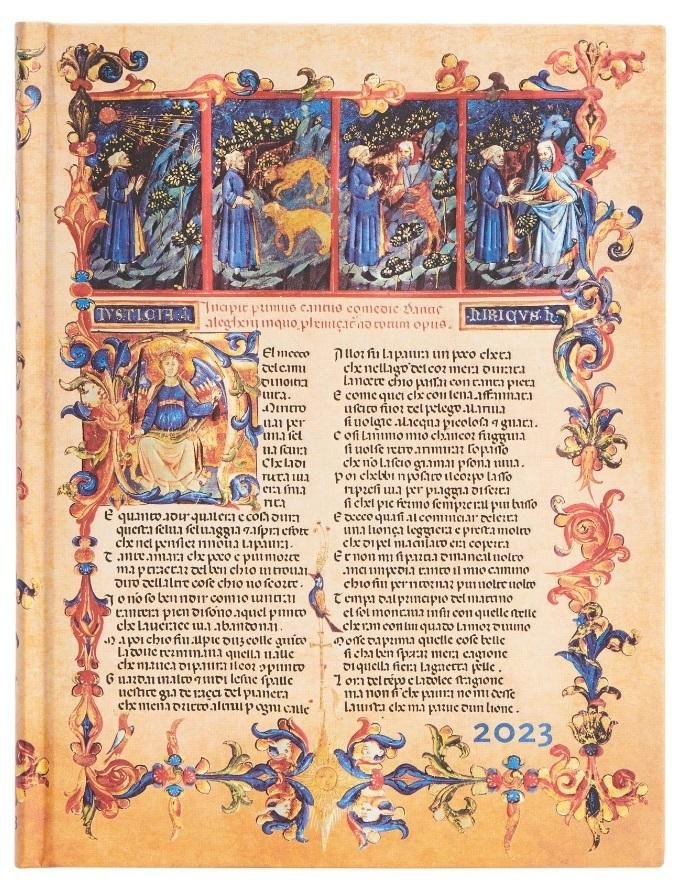 IVSTICIA
Incipit primus cantus comedie
totum opus.
El
del cami
di nostra
uita.
uai per
una sel
ua scura
Che la di
ritta uia
era sma
rita
E quanto a dir qual era e cosa dura
questa selua seluaggia aspra e forte
che nel pensier rinoua la paura.
T ant e amara che poco e piu morte
ma p tractar del ben chio ui trouai
diro dell altre cose chio uo scorte.
I o no so ben ridir como
tant era pien di sono a quel punto
che la uerace uia abandonai.
M a poi chio fui al pie colle
la doue terminaua quella ualle
che mauea di paura il cor punto
G uardai in alto uidi le sue spalle
uestite gia de raçi del pianeta
che mena dritto altrui p ogni calle
A llor fu la paura un poco cheta
che nel lago del cor mera durata
la nocte chio passai con tanta pieta
E come quei che con lena affannata
uscito fuor del pelego a la riua
si uolgie a lacqua picolosa guata.
C osi lanimo mio che ancor fuggiua
si uolse retro a rimirar lo passo
che no lascio giamai psona uiua.
P oi chebbi riposato il corpo lasso
ripresi uia per piaggia diserta
si chel pie fermo sempre era l piu basso
E t ecco quasi al cominciar de lerta
una lionça leggiera e presta molto
che di pel maculato era coperta
E t non mi si partia dinançi al uolto
anci impedia tanto il mio camino
chio fui per ritornar piu uolte uolto
T emp era dal principio del matino
el sol montaua in su con quelle stelle
cheran con lui quado lamor diuino
M osse da prima quelle cose belle
si cha ben sperar mera cagione
di quella fiera la gaetta pelle.
L ora del tepo e la dolce stagione
ma non si che paura no mi desse
la uista che ma parue dun lione.
2023